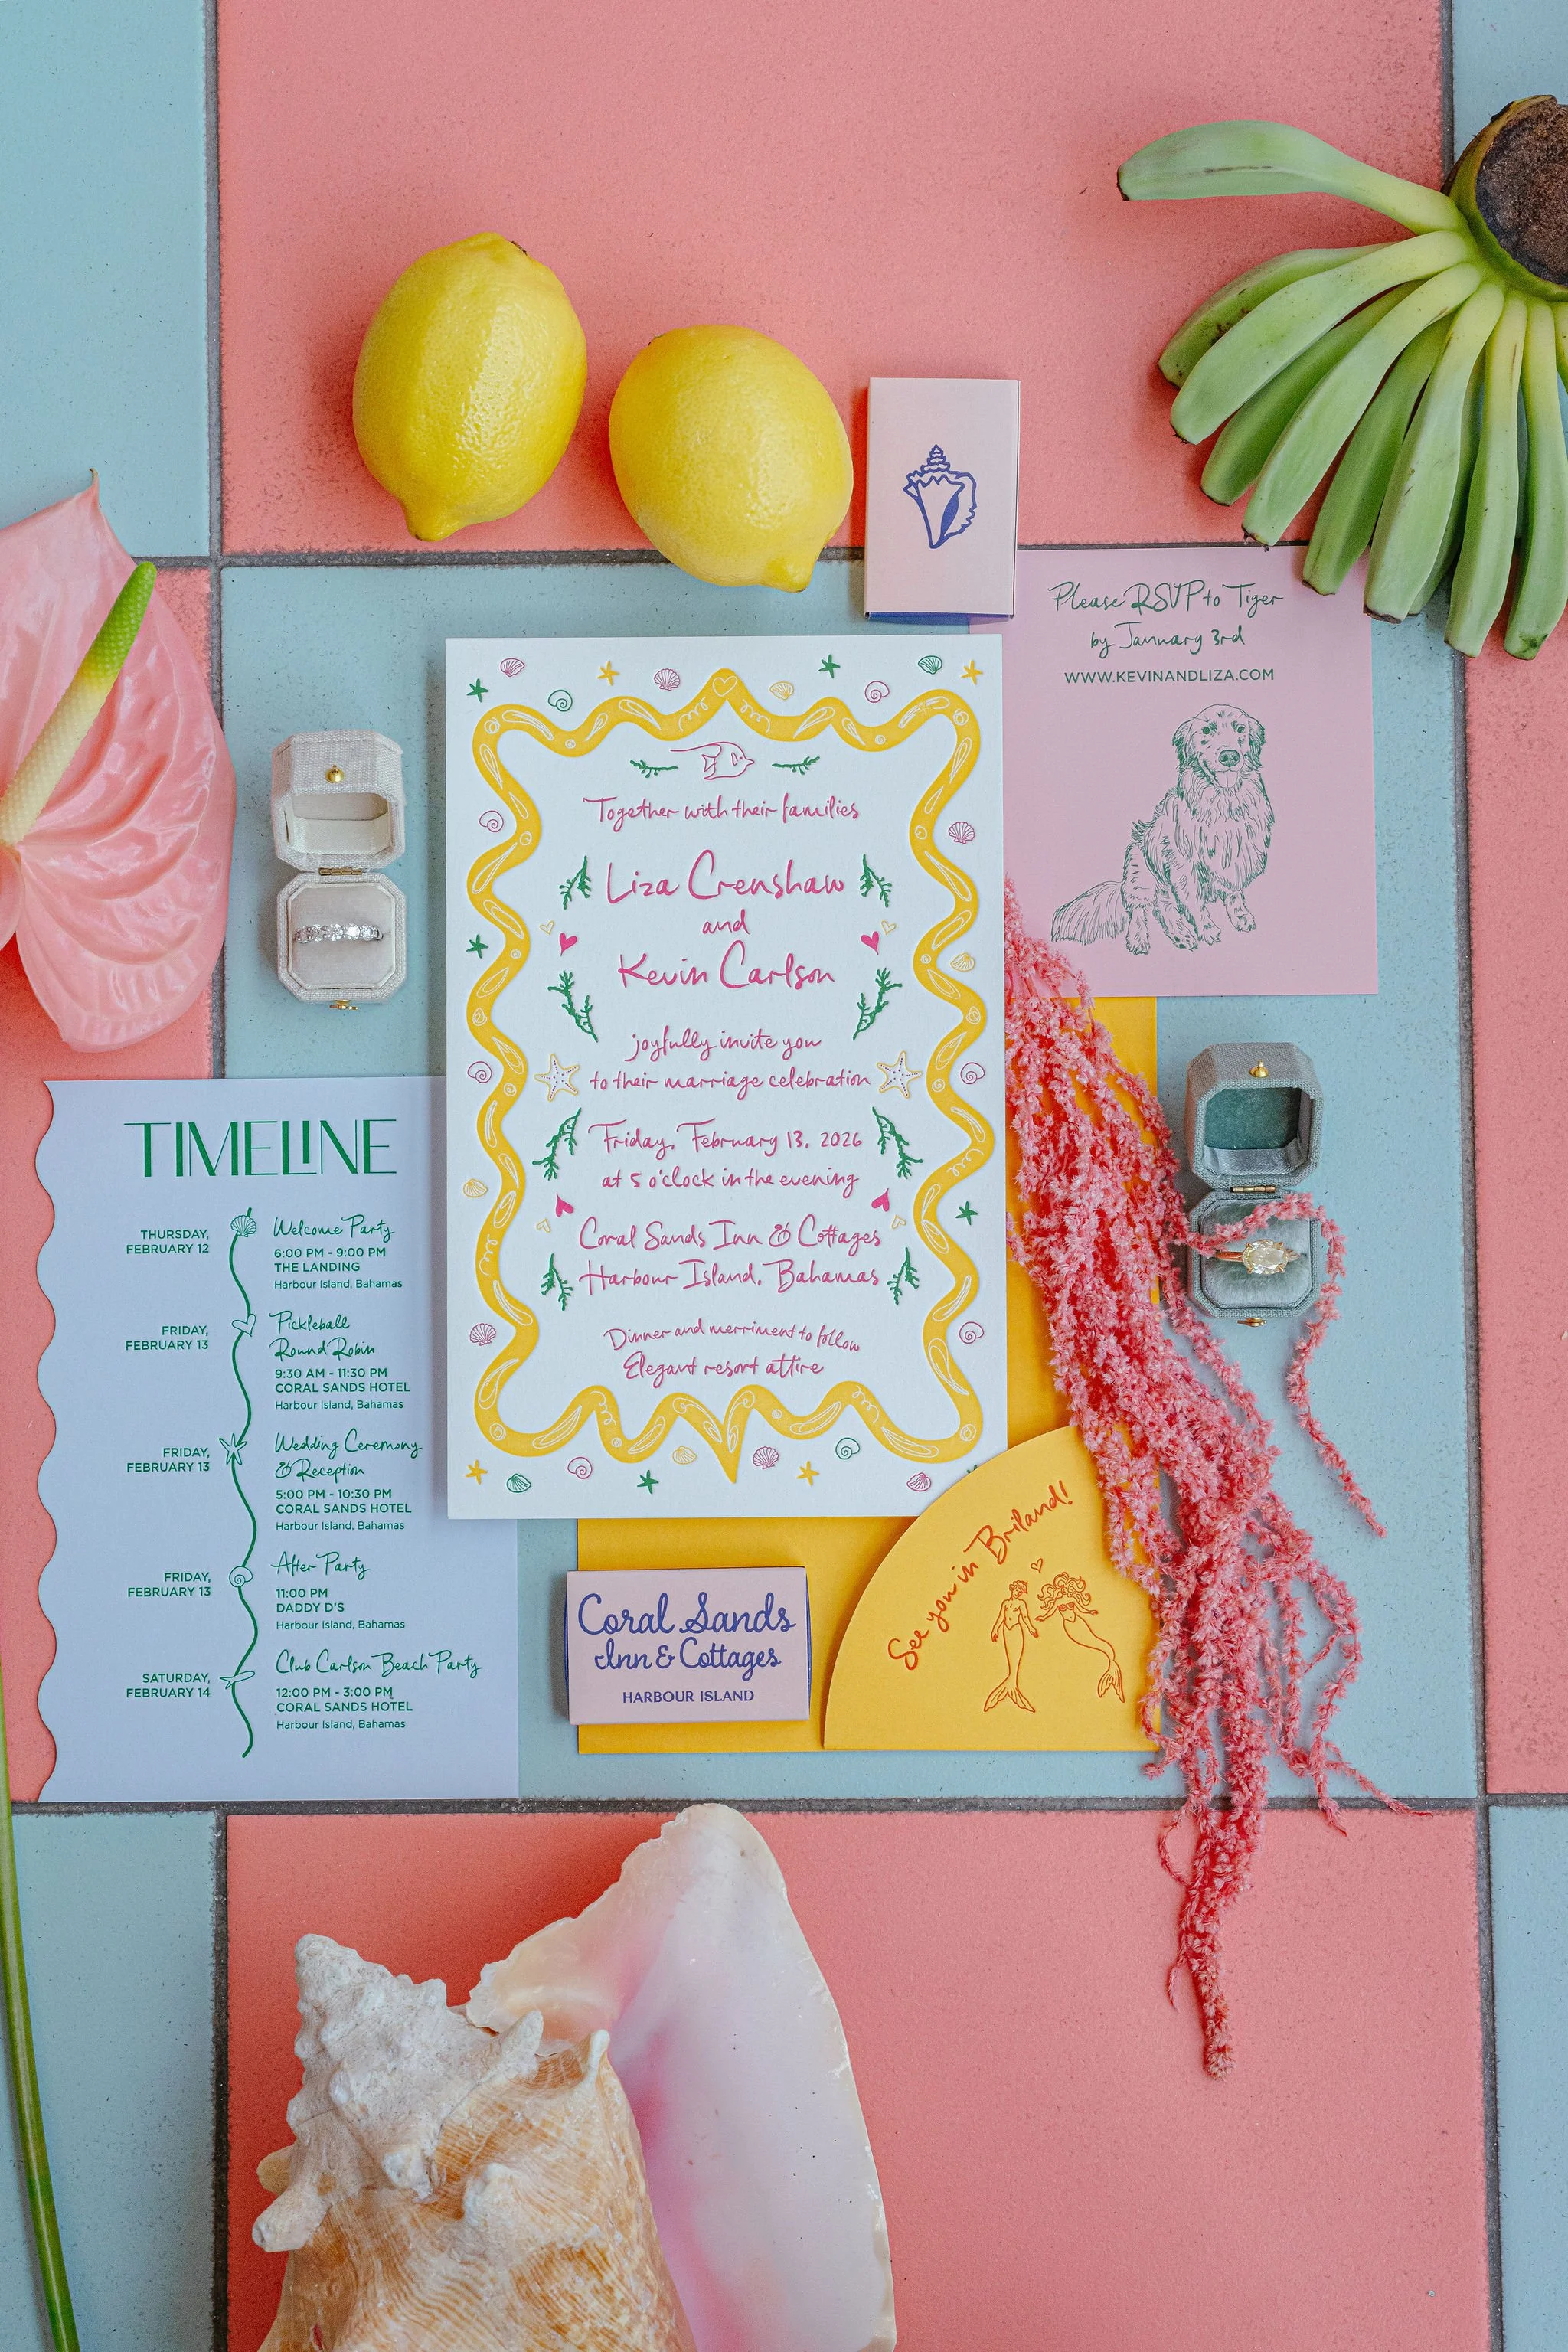 Please RSVP to Tiger
by January 3rd
WWW.KEVINANDLIZA.COM
Together with their families
Liza Crenshaw
and
Kevin Carlson
joyfully invite you
to their marriage celebration
Friday, February 13, 2026
at 5 o'clock in the evening
Coral Sands Inn & Cottages
Harbour Island, Bahamas
Dinner and merriment to follow
Elegant resort attire
TIMELINE
THURSDAY,
FEBRUARY 12
Welcome Party
6:00 PM - 9:00 PM
THE LANDING
Harbour Island, Bahamas
FRIDAY,
FEBRUARY 13
Pickleball
Round Robin
9:30 AM - 11:30 PM
CORAL SANDS HOTEL
Harbour Island, Bahamas
FRIDAY,
FEBRUARY 13
Wedding Ceremony
& Reception
5:00 PM - 10:30 PM
CORAL SANDS HOTEL
Harbour Island, Bahamas
FRIDAY,
FEBRUARY 13
After Party
11:00 PM
DADDY D'S
Harbour Island, Bahamas
SATURDAY,
FEBRUARY 14
Club Carlson Beach Party
12:00 PM - 3:00 PM
CORAL SANDS HOTEL
Harbour Island, Bahamas
Coral Sands
Inn & Cottages
HARBOUR ISLAND
See you in Briland!